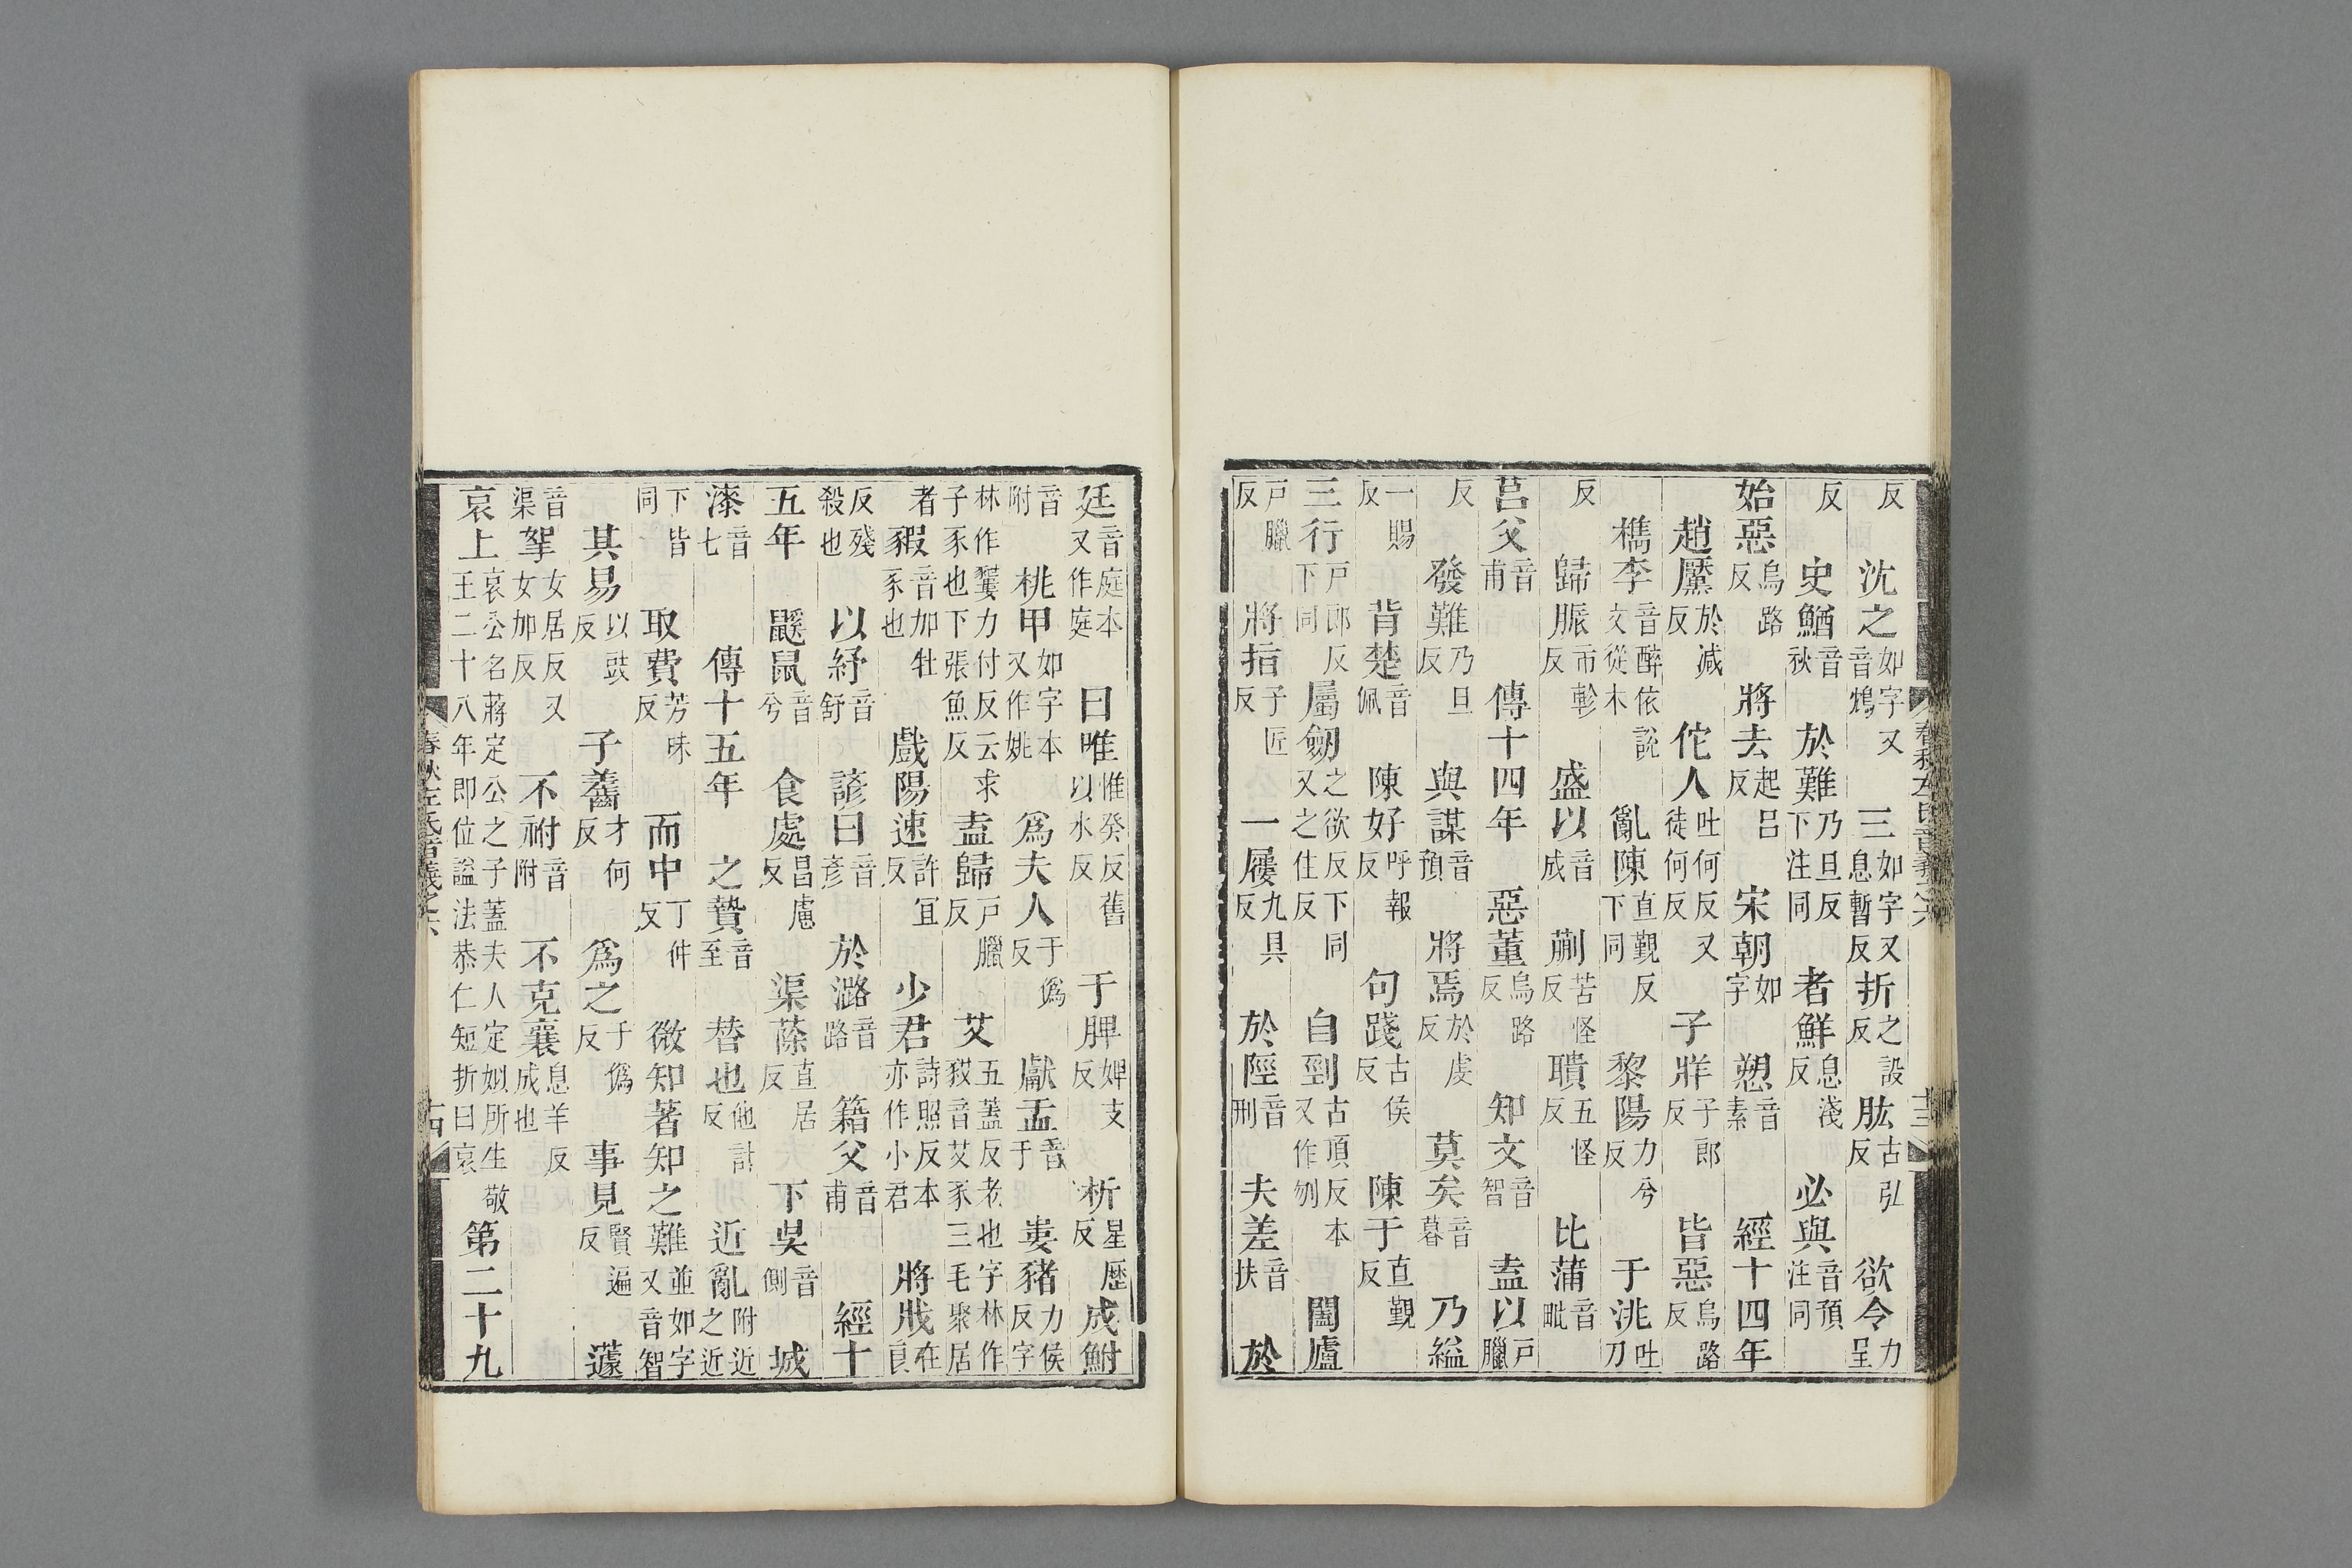 反　沈之如字又音鴆　三如字又息暫反折之設反　肱古弘反　欲令力呈
反　史鰌音秋　於難乃旦反下注同　者鮮息淺反　必與音預注同
始惡烏路反　將去起呂反　宋朝如字　愬音素　經十四年
趙黶於減反　佗人吐何反又徒何反　子牂子郎反　皆惡烏路反
檇李音醉依說文從木　亂陳直覲反下同　黎陽力兮反　于洮吐刀
反　歸脤市軫反　盛以音成　蒯苦怪反　聵五怪反　比蒲音毗
莒父音甫　傳十四年　惡董烏路反　知文音智　盍以戶臘
反　發難乃旦反　與謀音預　將焉於虔反　莫矣音暮　乃縊
一賜反　背楚音佩　陳好呼報反　句踐古侯反　陳于直覲反
三行戸郎反下同　屬劒之欲反下同又之住反　自剄古頂反本又作刎　闔廬
戸臘反　將指子匠反　一屨九具反　於陘音刑　夫差音扶　於
廷音庭本又作庭　曰唯惟癸反舊以水反　于脾婢支反　析星歷反　成鮒
音附　桃甲如字本又作姚　爲夫人于僞反　獻盂音于　婁豬力侯反字
林作䝏力付反云求子豕也下張魚反　盍歸戸臘反　艾五蓋反老也字林作豛音艾豕三毛聚居
者　豭音加牡豕也　戲陽速許宜反　少君詩照反本亦作小君　將戕在良
反殘殺也　以紓音舒　諺曰音彦　於潞音路　籍父音甫　經十
五年　鼷鼠音兮　食處昌慮反　渠蒢直居反　下吳音側　城
漆音七　傳十五年　之贄音至　替也他計反　近亂附近之近
下皆同　取費芳味反　而中丁仲反　微知著知之難並如字又音智
其易以豉反　子𪗉才何反　爲之于僞反　事見賢遍反　蘧
音渠　挐女居反又女加反　不祔音附　不克襄息羊反成也
哀上哀公名蔣定公之子蓋夫人定姒所生敬王二十八年即位謚法恭仁短折曰哀　第二十九
春秋左氏音義之六　十三
春秋左氏音義之六　十四